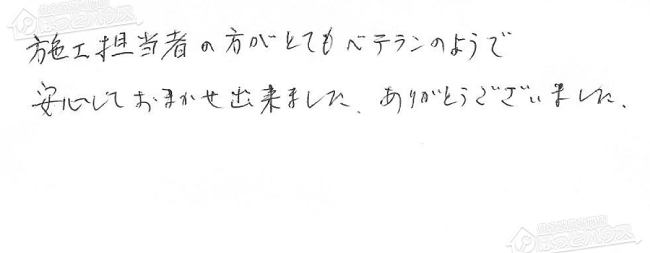 施工担当者の方がとてもベテランのようで
安心しておまかせ出来ました。ありがとうございました。